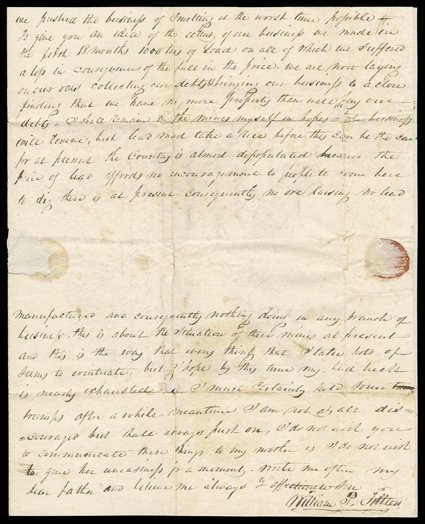 we pushed the business of Smelting at the worst time possible
To give you an idea of the extent of our business we made in
the first 18 months 1000 of Lead on all of which we suffered
a loss in consequence of the fall in the price we are now laying
on our oars collecting our debts & bringing our business to a close
finding that we have no more property than will pay our
debts. I shall remain in the mines myself in hopes business
will revive, but lead must take a rise before this can be the case
for at present the Country is almost depopulated because the
price of lead affords no encouragement to people to come here
to dig there is at present consequently no ore raising no lead
manufactured and consequently nothing doing in any branch of
business this is about the Situation of these mines at present
and this is the way that every thing that I take hold of
seems to eventuate, but I hope by this time my bad luck
is nearly exhausted I must certainly hold some
trumps after a while meantime I am not at all dis-
couraged but shall always push on, I do not wish you
to communicate these things to my mother as I do not wish
to give her uneasiness for a moment, write me often my
dear father and believe me always yr affectionate Son
William